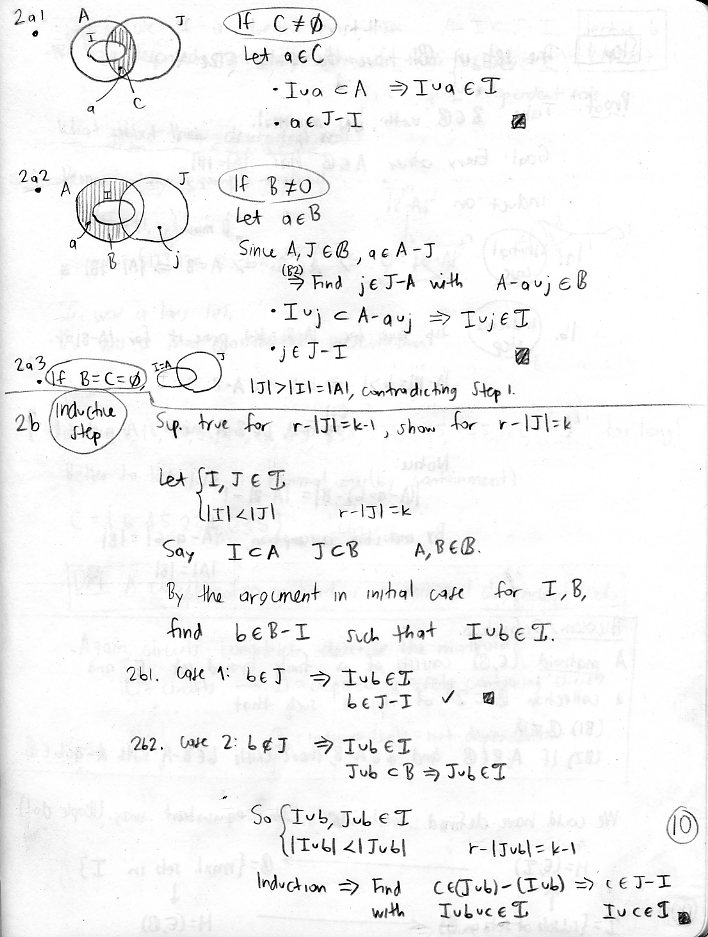 2a1
A
J
I
a
C
If C ≠ ∅
Let a ∈ C
• I∪a ⊂ A ⇒ I∪a ∈ I
• a ∈ J-I
2a2
A
J
I
a
B
j
If B ≠ 0
Let a ∈ B
Since A, J ∈ B, a ∈ A-J
(B2) ⇒ Find j ∈ J-A with A-a∪j ∈ B
• I∪j ⊂ A-a∪j ⇒ I∪j ∈ I
• j ∈ J-I
2a3
If B=C=∅,
I=A
J
|J|>|I|=|A|, contradicting Step 1.
2b Inductive Step
Sup. true for r-|J|=k-1, show for r-|J|=k
Let { I, J ∈ I
|I|<|J| r-|J|=k
Say I⊂A J⊂B A,B∈B.
By the argument in initial case for I, B,
find b∈B-I such that I∪b∈I.
2b1. Case 1: b∈J ⇒ I∪b∈I
b∈J-I ✓
2b2. Case 2: b∉J ⇒ I∪b∈I
J∪b ⊂ B ⇒ J∪b∈I
So { I∪b, J∪b ∈ I
|I∪b|<|J∪b| r-|J∪b|=k-1
10
Induction ⇒ Find c∈(J∪b)-(I∪b) ⇒ c∈J-I
with I∪b∪c∈I I∪c∈I